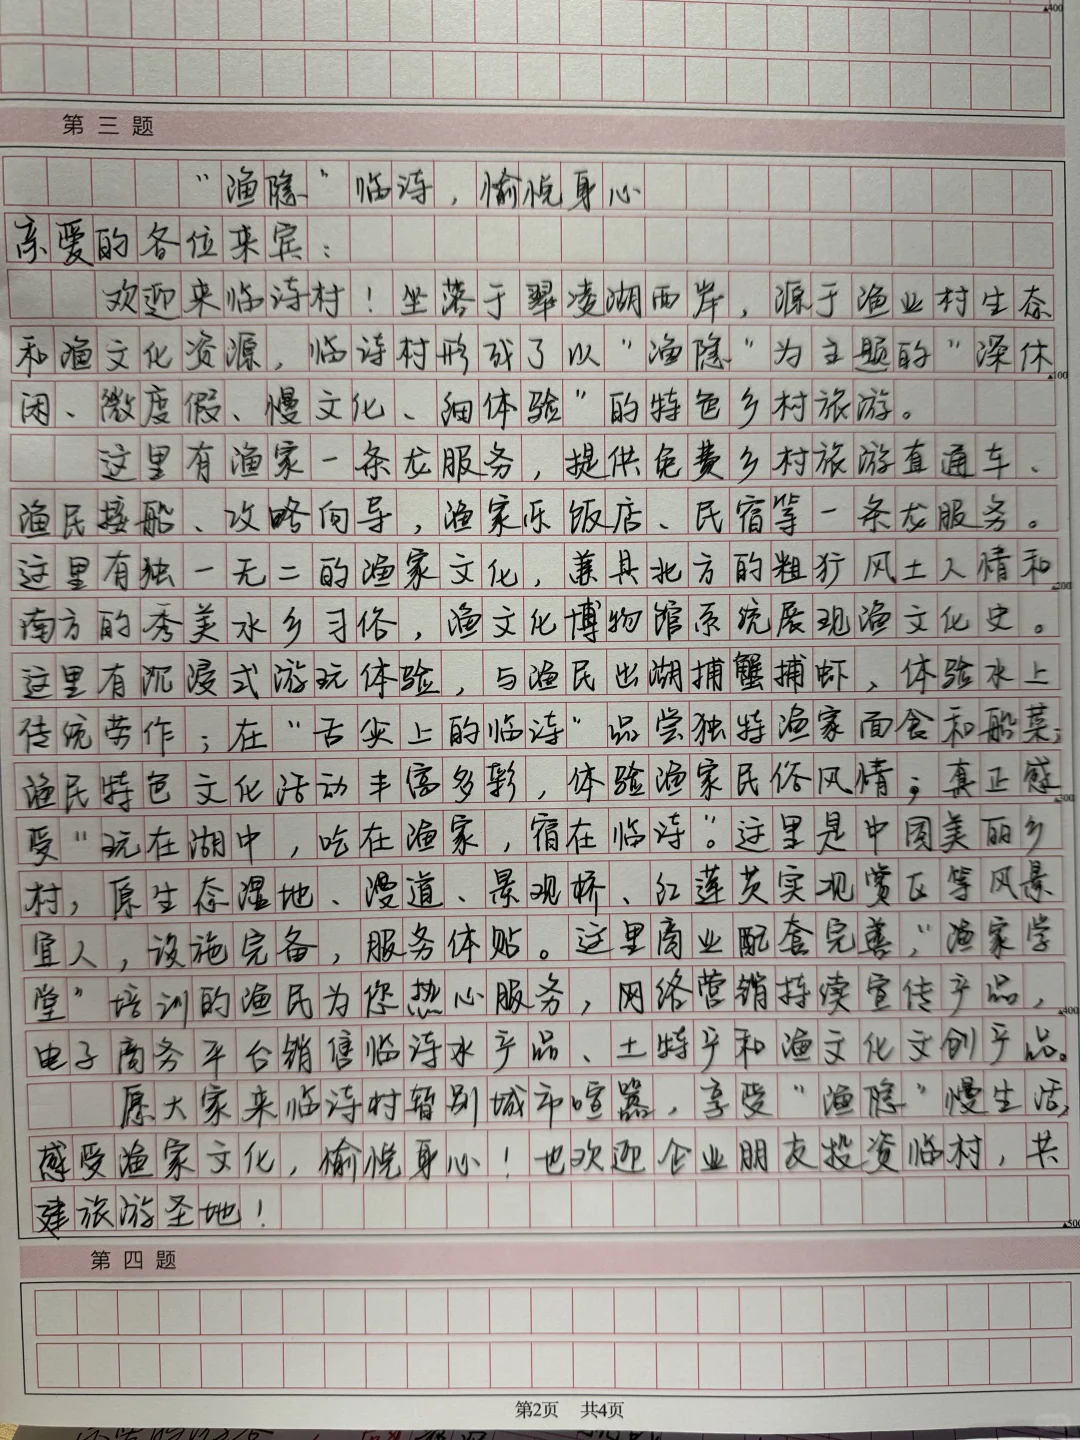 400
第三题
“渔隐”临涛，愉悦身心
亲爱的各位来宾：
欢迎来临涛村！坐落于翠凌湖西岸，源于渔业村生态
和渔文化资源，临涛村形成了以“渔隐”为主题的“深休
100
闲、微度假、慢文化、细体验”的特色乡村旅游。
这里有渔家一条龙服务，提供免费乡村旅游直通车、
渔民接船、攻略向导，渔家乐饭店、民宿等一条龙服务。
这里有独一无二的渔家文化，兼具北方的粗犷风土人情和
200
南方的秀美水乡习俗，渔文化博物馆系统展现渔文化史。
这里有沉浸式游玩体验，与渔民出湖捕蟹捕虾，体验水上
传统劳作；在“舌尖上的临涛”品尝独特渔家面食和船菜；
渔民特色文化活动丰富多彩，体验渔家民俗风情；真正感
300
受“玩在湖中，吃在渔家，宿在临涛”。这里是中国美丽乡
村，原生态湿地、漫道、景观桥、红莲芡实观赏区等风景
宜人，设施完备，服务体贴。这里商业配套完善，“渔家学
堂”培训的渔民为您热心服务，网络营销持续宣传产品，
400
电子商务平台销售临涛水产品、土特产和渔文化文创产品。
愿大家来临涛村暂别城市喧嚣，享受“渔隐”慢生活，
感受渔家文化，愉悦身心！也欢迎企业朋友投资临村，共
建旅游圣地！
500
第四题
第2页 共4页